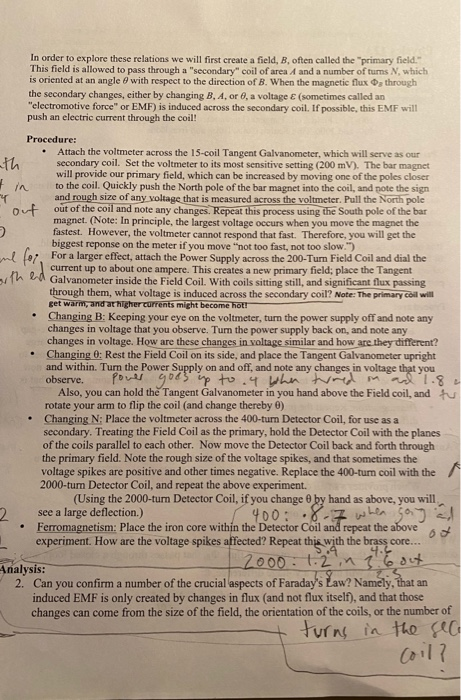 In order to explore these relations we will first create a field, B, often called the "primary field."
This field is allowed to pass through a "secondary" coil of area A and a number of turns N, which
is oriented at an angle θ with respect to the direction of B. When the magnetic flux ΦB through
the secondary changes, either by changing B, A, or θ, a voltage ε (sometimes called an
"electromotive force" or EMF) is induced across the secondary coil. If possible, this EMF will
push an electric current through the coil!
Procedure:
• Attach the voltmeter across the 15-coil Tangent Galvanometer, which will serve as our
secondary coil. Set the voltmeter to its most sensitive setting (200 mV). The bar magnet
will provide our primary field, which can be increased by moving one of the poles closer
to the coil. Quickly push the North pole of the bar magnet into the coil, and note the sign
and rough size of any voltage that is measured across the voltmeter. Pull the North pole
out of the coil and note any changes. Repeat this process using the South pole of the bar
magnet. (Note: In principle, the largest voltage occurs when you move the magnet the
fastest. However, the voltmeter cannot respond that fast. Therefore, you will get the
biggest reponse on the meter if you move "not too fast, not too slow.")
For a larger effect, attach the Power Supply across the 200-Turn Field Coil and dial the
current up to about one ampere. This creates a new primary field; place the Tangent
Galvanometer inside the Field Coil. With coils sitting still, and significant flux passing
through them, what voltage is induced across the secondary coil? Note: The primary coil will
get warm, and at higher currents might become hot!
• Changing B: Keeping your eye on the voltmeter, turn the power supply off and note any
changes in voltage that you observe. Turn the power supply back on, and note any
changes in voltage. How are these changes in voltage similar and how are they different?
• Changing θ: Rest the Field Coil on its side, and place the Tangent Galvanometer upright
and within. Turn the Power Supply on and off, and note any changes in voltage that you
observe. Power goes up to .4 when turned on and 1.8
Also, you can hold the Tangent Galvanometer in you hand above the Field coil, and
rotate your arm to flip the coil (and change thereby θ)
• Changing N: Place the voltmeter across the 400-turn Detector Coil, for use as a
secondary. Treating the Field Coil as the primary, hold the Detector Coil with the planes
of the coils parallel to each other. Now move the Detector Coil back and forth through
the primary field. Note the rough size of the voltage spikes, and that sometimes the
voltage spikes are positive and other times negative. Replace the 400-turn coil with the
2000-turn Detector Coil, and repeat the above experiment.
(Using the 2000-turn Detector Coil, if you change θ by hand as above, you will
see a large deflection.) 400: .8 .7 when going
• Ferromagnetism: Place the iron core within the Detector Coil and repeat the above out
experiment. How are the voltage spikes affected? Repeat this with the brass core...
5.9 4.6
2000: 1.2 in 3.6 out
Analysis:
2. Can you confirm a number of the crucial aspects of Faraday's Law? Namely, that an
induced EMF is only created by changes in flux (and not flux itself), and that those
changes can come from the size of the field, the orientation of the coils, or the number of
turns in the
coil?